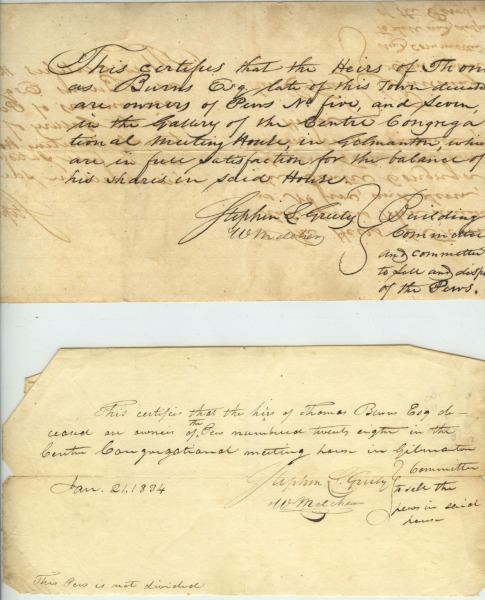 This certifies that the Heirs of Thom
as Burns Esq late of this Town deceas
are owners of Pews No five, and Seven,
in the Gallery of the Centre Congrega
tional Meeting House, in Gilmanton, whic
are in full satisfaction for the balance of
his shares in said House.
Stephen L. Greely
W Melcher
Building
Committee
and committee
to sell and dispo
of the Pews.
This certifies that the hirs of Thomas Burns Esq de-
ceased are owners of the Pew numbered twenty eight in the
Centre Congregational meeting house in Gilmanton
Jan. 21. 1834
Stephen L. Greely
W Melcher
Committee
to sell the
pews in said
house
This Pew is not divided